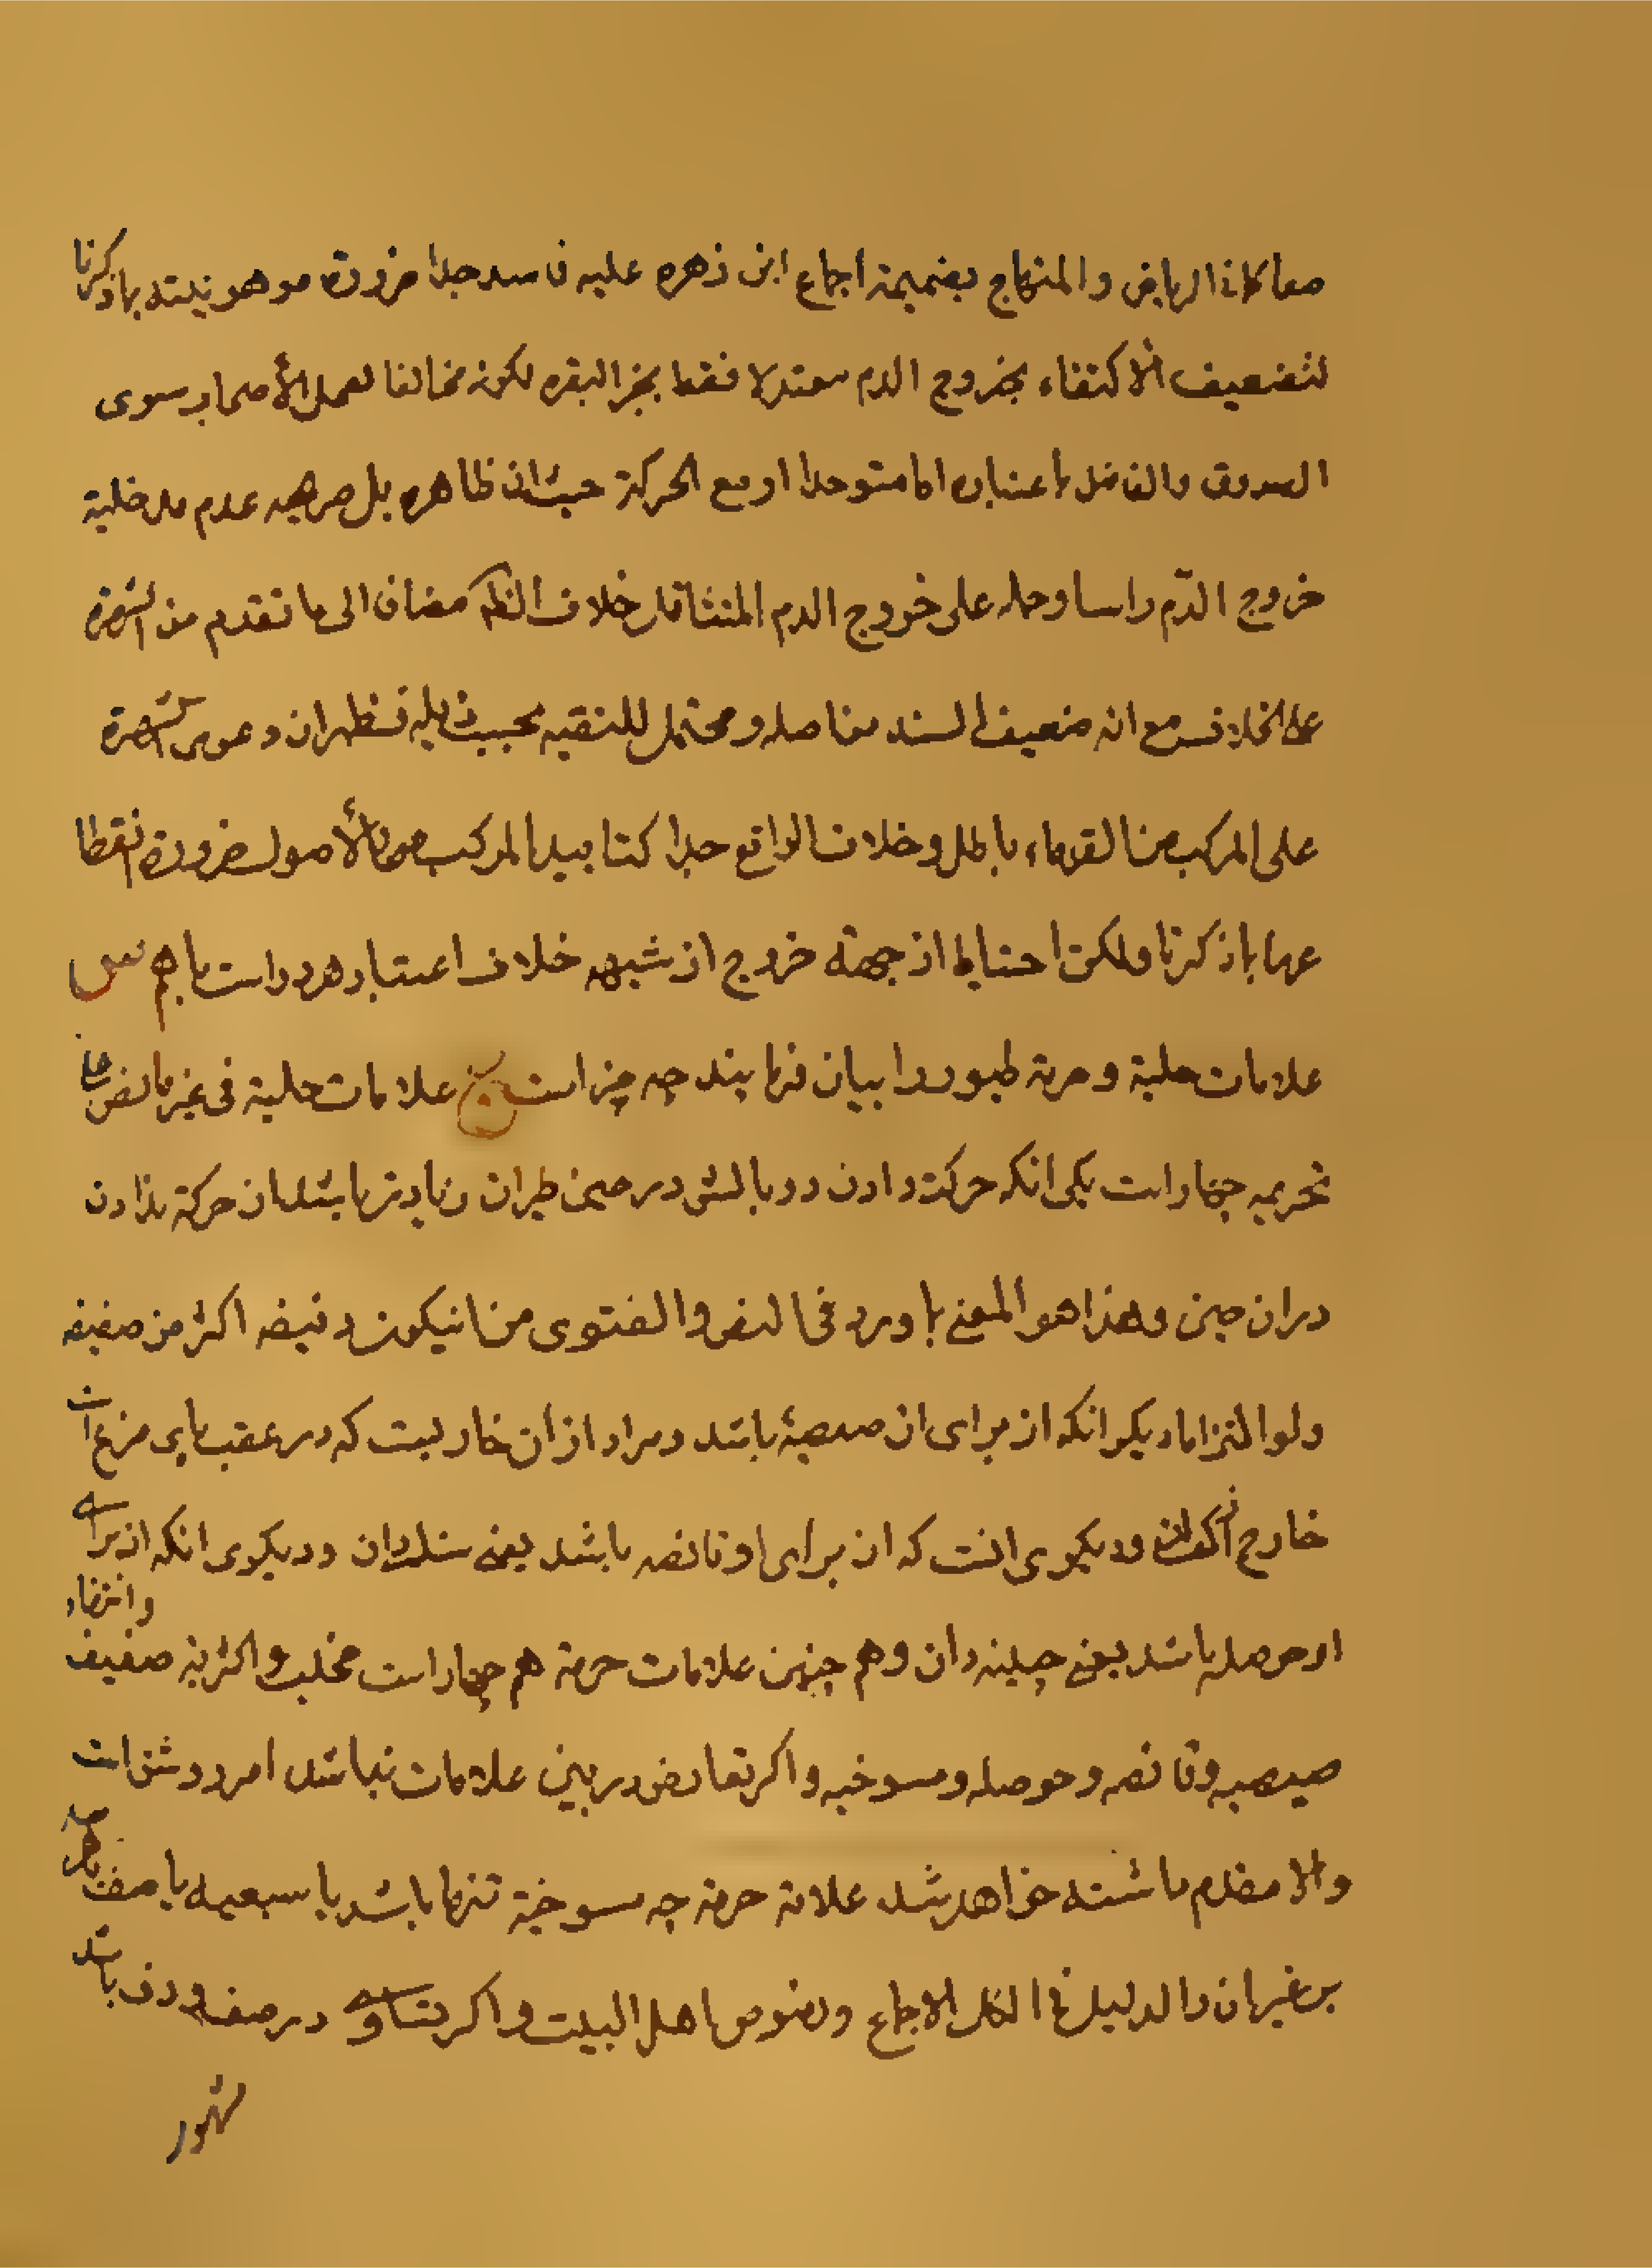 معا كما فی الرياض والمنهاج بضميمة اجماع ابن زهره عليه فاسد جدا ضرورة موهونيته بما ذكرنا
لتضعيف الأكتفاء بخروج الدم معتدلا فقط بخبر البقره لكونه مخالفا لعمل الأصحاب سوى
الصدوق والفاضل باعتباره اما متوحدا او مع الحركة حيث ان ظاهره بل صريحه عدم مدخلية
خروج الدّم راسا وحمله على خروج الدم المتثاقل خلاف الظ مضاف الى ما تقدم من الشهرة
على الخلاف مع انه ضعيف السند مفاصله ومحتمل للتقيه بحسب ذيله فظهر ان دعوى الشهرة
على المركب من القدماء باطل وخلاف الواقع جدا كتاييد المركب بالأصول ضرورة انقطا
عها بما ذكرنا ولكن احتياطا از جهة خروج از شبهه خلاف اعتبار هر دو است با هم س
علامات حلية وحرمة طيور را بيان فرمايند چه چيز است ج علامات حلية فى غير ما نص على
تحريمه چهار است يكى انكه حركت دادن دو بالش در حين طيران زيادتر باشد از حركة ندادن
در ان حين وهذا هو المعنى بما ورد فى النص والفتوى من ان يكون دفيفه اكثر من صفيفه
ولو التزاما ديكر انكه از براى ان صيصيۀ باشد ومراد از ان خاريست كه در عقب پاى مرغ است
خارج از كفان وديكرى انست كه از براى او قانصه باشد يعنى سنكدان وديكرى انكه از براى
او حوصله باشد يعنى چينه دان وهم چنين علامات حرمة هم چهار است مخلب واكثرية صفيف وانتفاء
صيصيه وقانصه وحوصله ومسوخيه واكر تعارض در بين علامات نباشد امر روشن است
والا مقدم داشته خواهد شد علامة حرمة چه مسوخية تنها باشد يا سبعيه يا صف
بر غير ان والدليل فى الكل الاجماع ونصوص اهل البيت واكر تساوى در صف ودف باشد